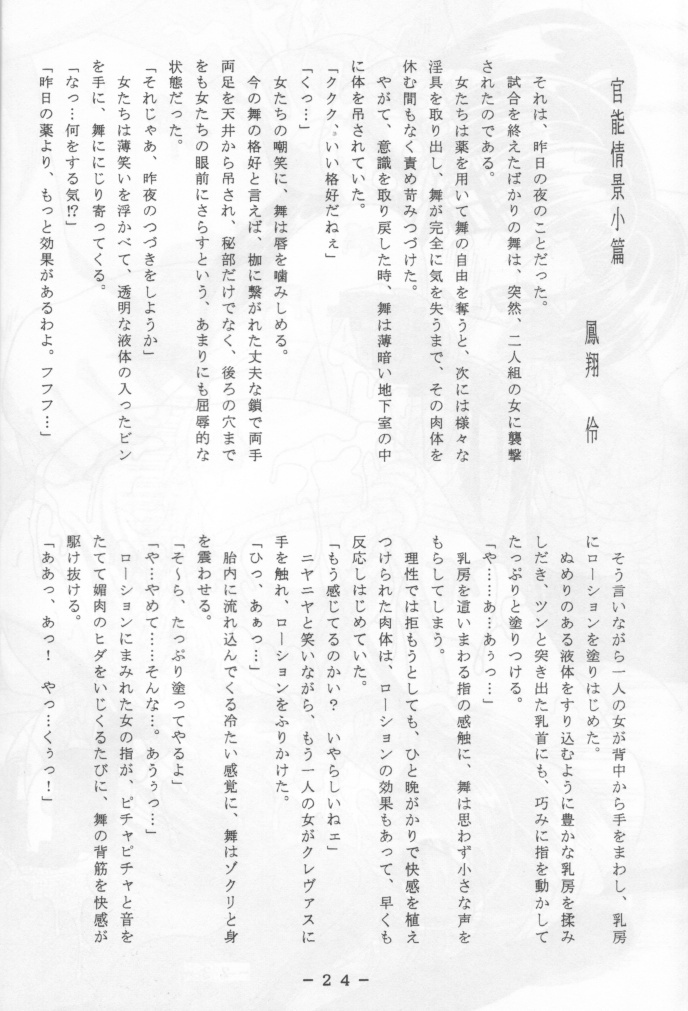 官能情景小篇
鳳翔　伶
それは、昨日の夜のことだった。
試合を終えたばかりの舞は、突然、二人組の女に襲撃
されたのである。
女たちは薬を用いて舞の自由を奪うと、次には様々な
淫具を取り出し、舞が完全に気を失うまで、その肉体を
休む間もなく責め苛みつづけた。
やがて、意識を取り戻した時、舞は薄暗い地下室の中
に体を吊されていた。
「ククク、いい格好だねぇ」
「くっ…」
女たちの嘲笑に、舞は唇を噛みしめる。
今の舞の格好と言えば、枷に繋がれた丈夫な鎖で両手
両足を天井から吊され、秘部だけでなく、後ろの穴まで
をも女たちの眼前にさらすという、あまりにも屈辱的な
状態だった。
「それじゃあ、昨夜のつづきをしようか」
女たちは薄笑いを浮かべて、透明な液体の入ったビン
を手に、舞ににじり寄ってくる。
「なっ…何をする気!?」
「昨日の薬より、もっと効果があるわよ。フフフ…」
そう言いながら一人の女が背中から手をまわし、乳房
にローションを塗りはじめた。
ぬめりのある液体をすり込むように豊かな乳房を揉み
しだき、ツンと突き出た乳首にも、巧みに指を動かして
たっぷりと塗りつける。
「や……あ…あぅっ…」
乳房を這いまわる指の感触に、舞は思わず小さな声を
もらしてしまう。
理性では拒もうとしても、ひと晩がかりで快感を植え
つけられた肉体は、ローションの効果もあって、早くも
反応しはじめていた。
「もう感じてるのかい？　いやらしいねェ」
ニヤニヤと笑いながら、もう一人の女がクレヴァスに
手を触れ、ローションをふりかけた。
「ひっ、あぁっ…」
胎内に流れ込んでくる冷たい感覚に、舞はゾクリと身
を震わせる。
「そ～ら、たっぷり塗ってやるよ」
「や…やめて……そんな…。あうぅっ…」
ローションにまみれた女の指が、ピチャピチャと音を
たてて媚肉のヒダをいじくるたびに、舞の背筋を快感が
駆け抜ける。
「ああっ、あっ！　やっ…くぅっ！」
－24－